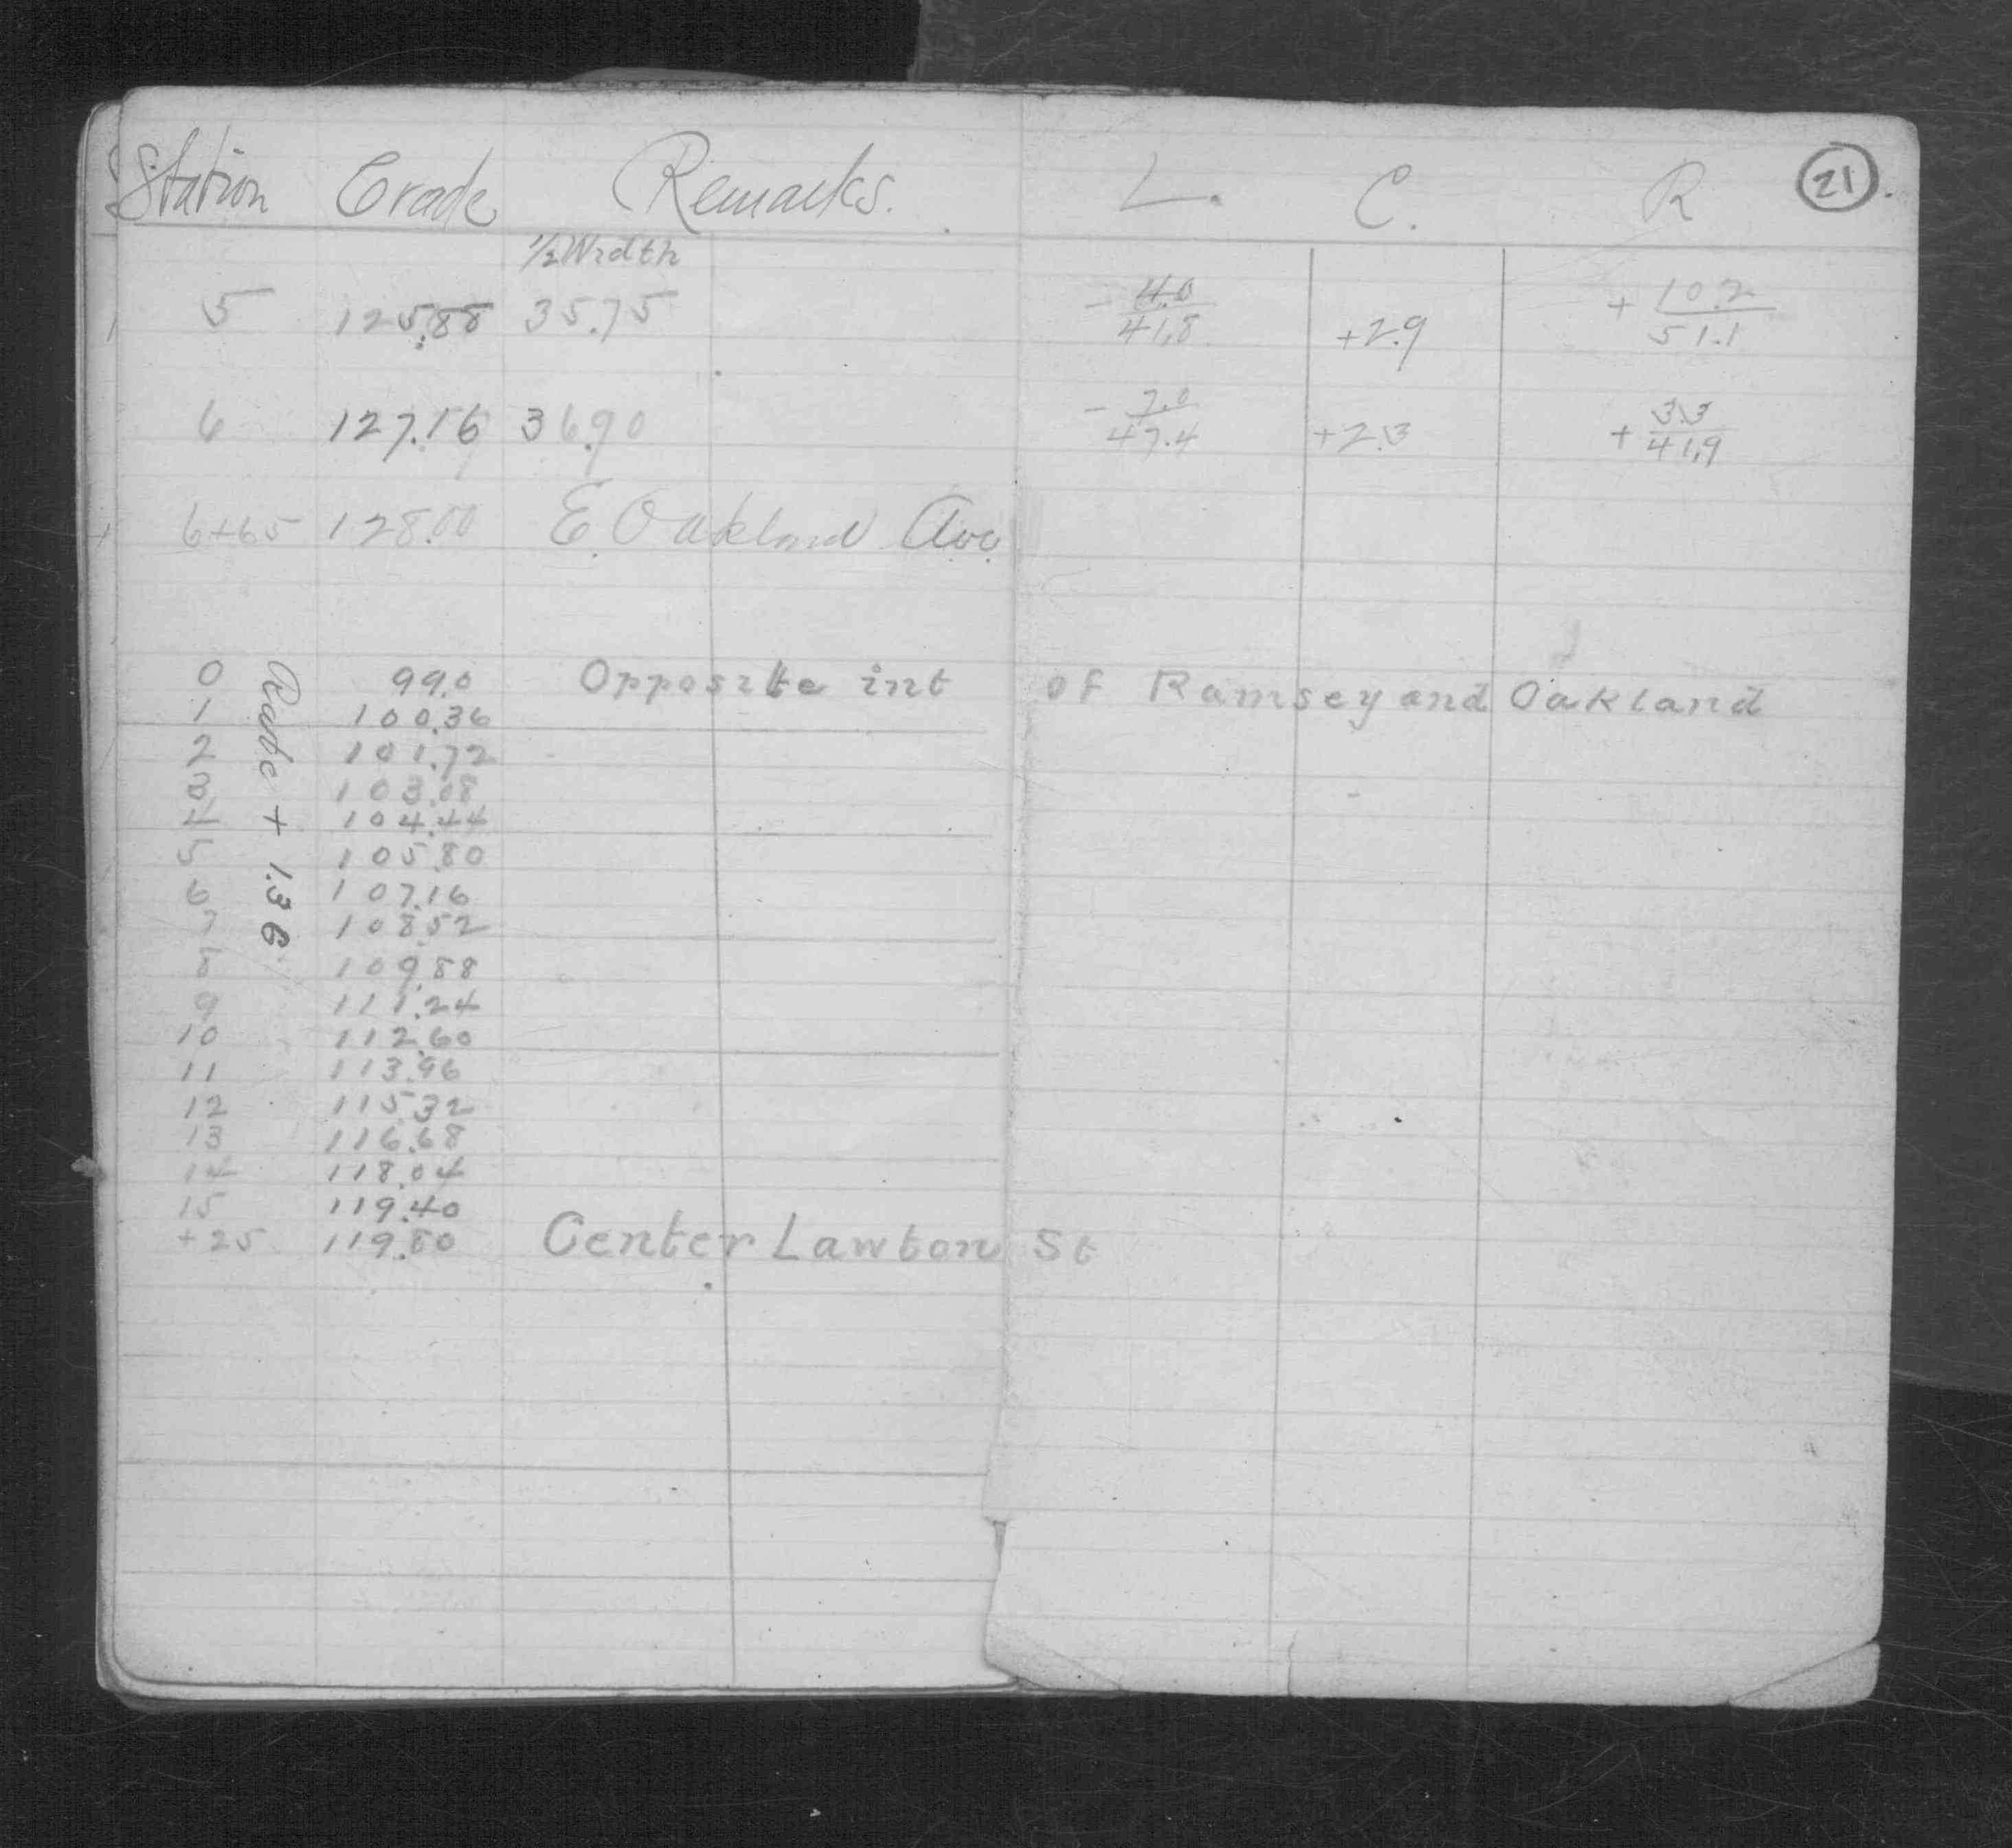 Station Grade Remarks. L. C. R 21
1/2 Width
5 125.88 35.75 - 4.0/41.8 +2.9 + 10.2/51.1
6 127.16 36.90 - 7.0/47.4 +2.3 + 3.3/41.9
6+65 128.00 E. Oakland Ave.
Rate + 1.36
0 99.0 Opposite int of Ramsey and Oakland
1 100.36
2 101.72
3 103.08
4 104.44
5 105.80
6 107.16
7 108.52
8 109.88
9 111.24
10 112.60
11 113.96
12 115.32
13 116.68
14 118.04
15 119.40
+25 119.80 Center Lawton St